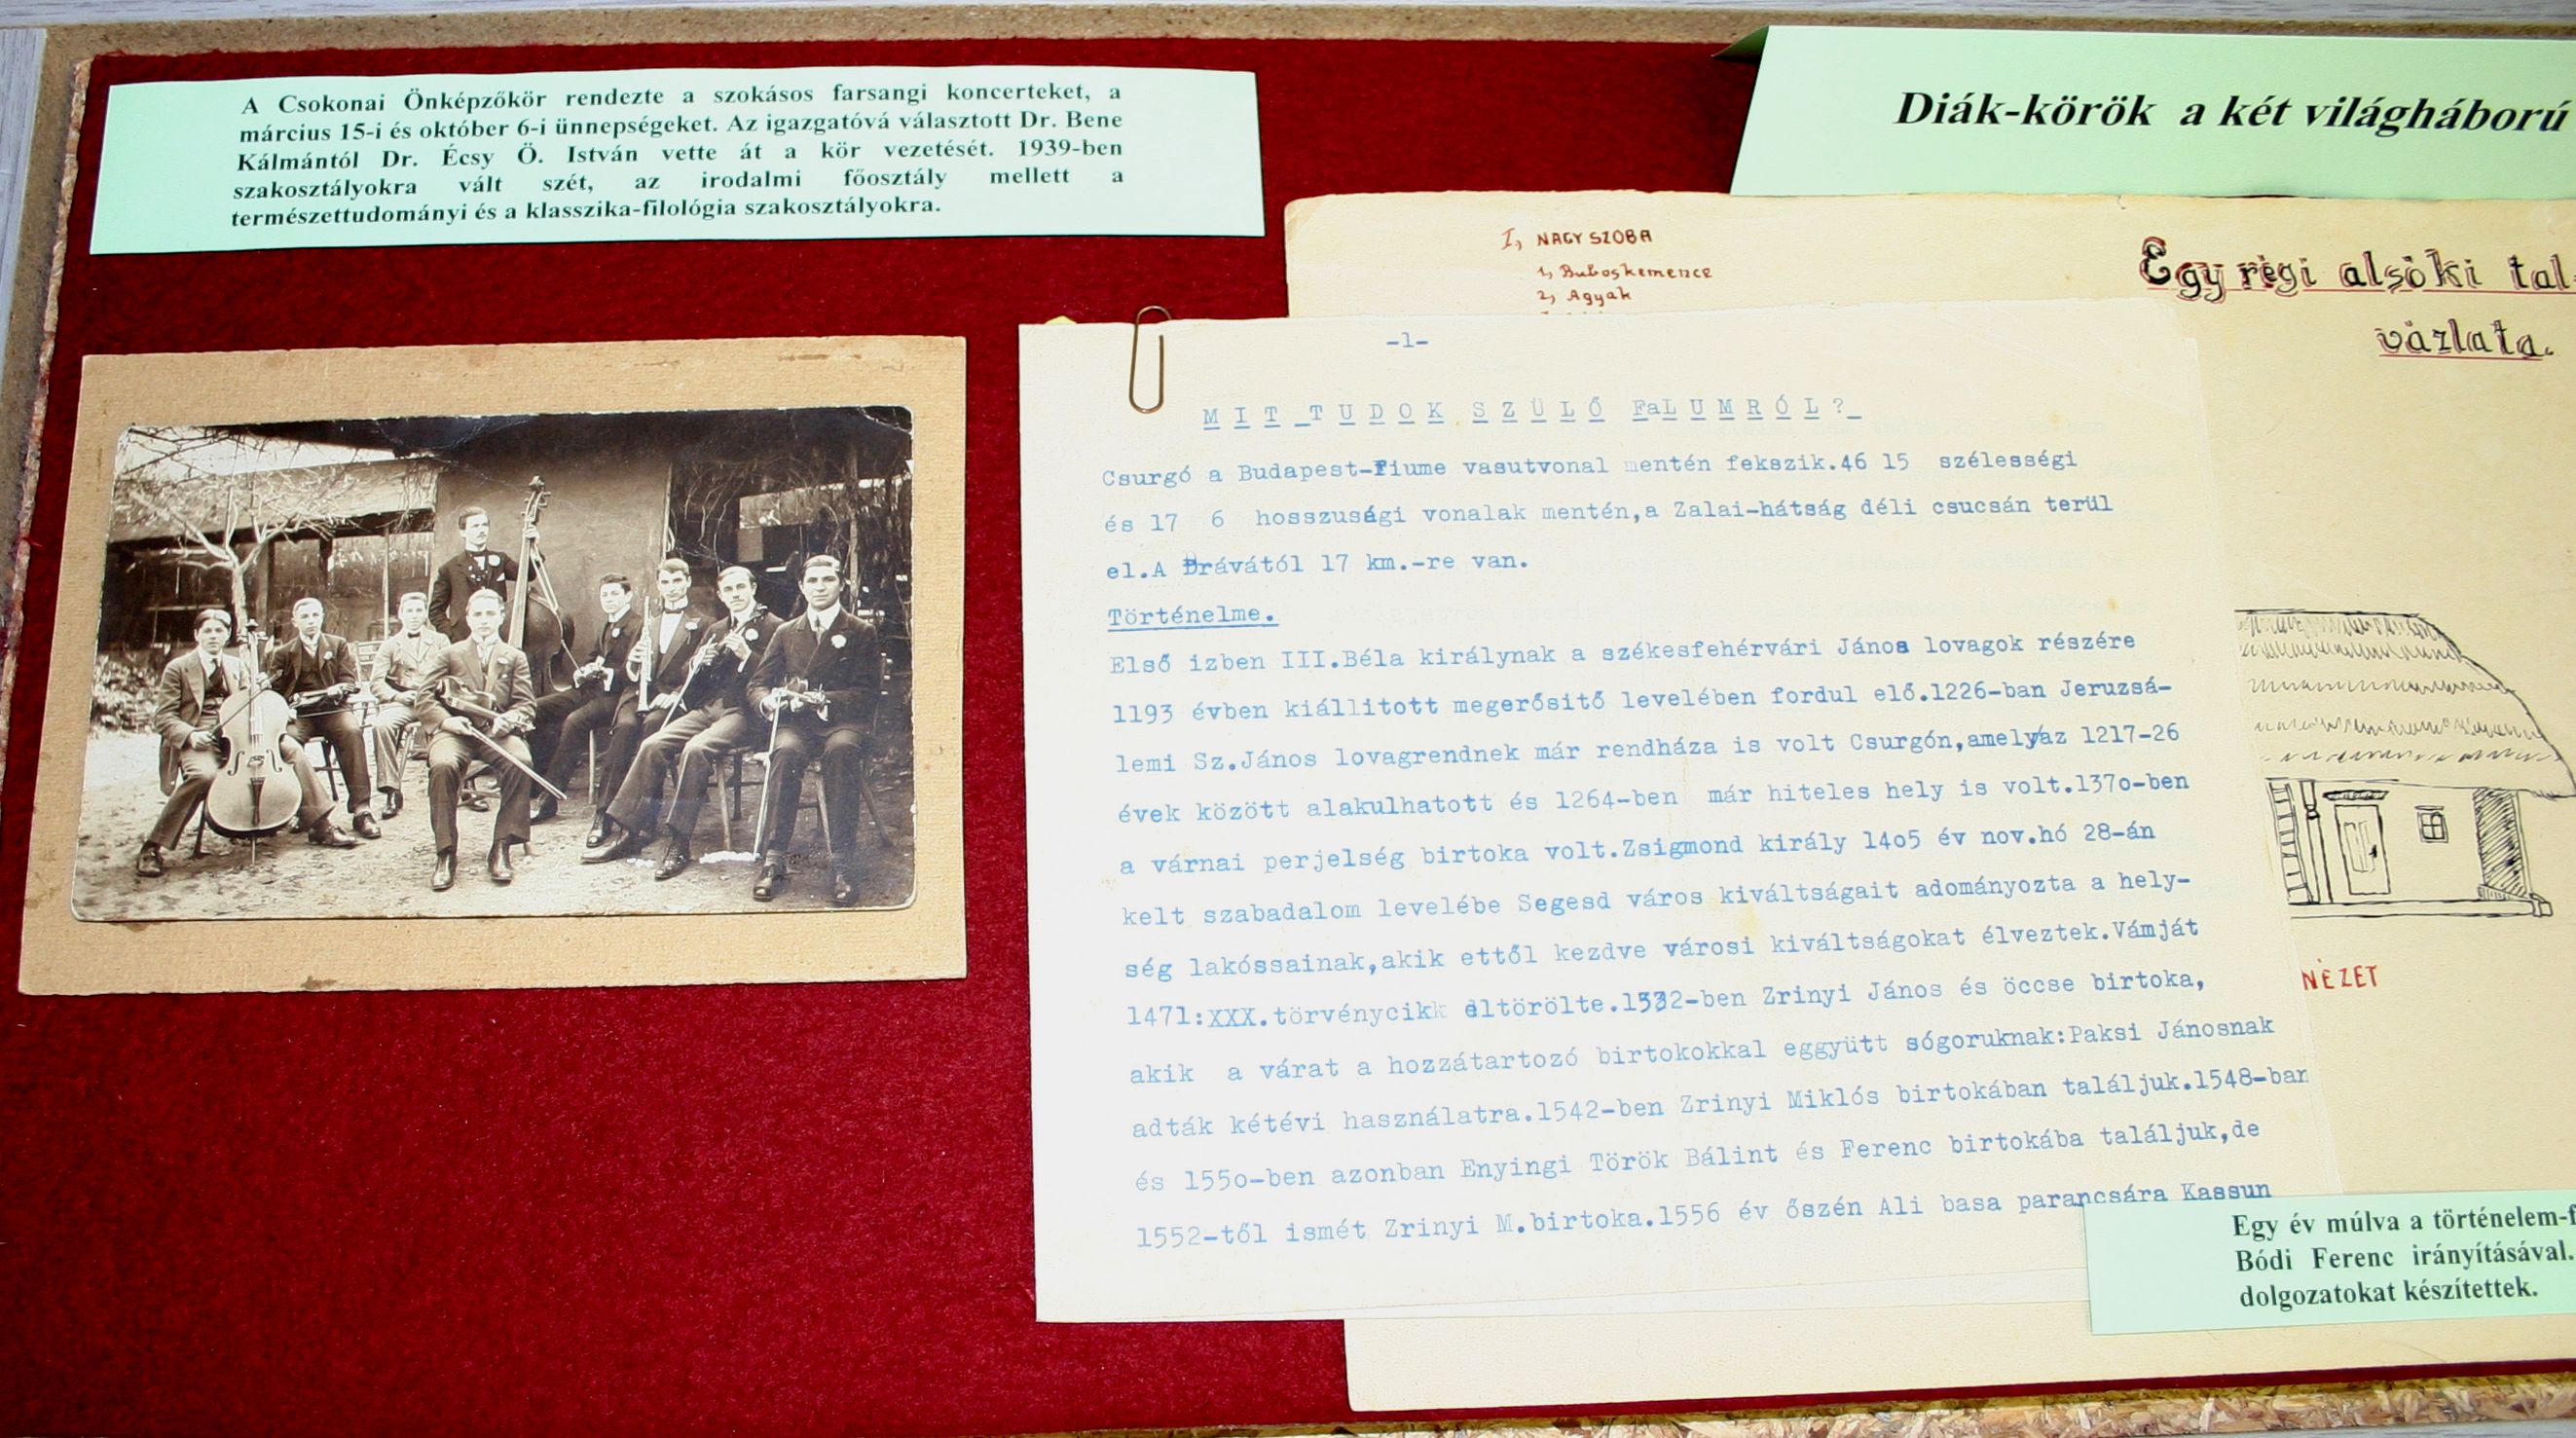 A Csokonai Önképzőkör rendezte a szokásos farsangi koncerteket, a
március 15-i és október 6-i ünnepségeket. Az igazgatóvá választott Dr. Bene
Kálmántól Dr. Écsy Ö. István vette át a kör vezetését. 1939-ben
szakosztályokra vált szét, az irodalmi főosztály mellett a
természettudományi és a klasszika-filológia szakosztályokra.
Diák-körök a két világháború
I, NAGY SZOBA
1, Buboskemence
2, Agyak
Egy régi alsóki tal
vázlata.
-1-
MIT TUDOK SZÜLŐ FaLUMRÓL?
Csurgó a Budapest-Fiume vasutvonal mentén fekszik.46 15 szélességi
és 17 6 hosszusági vonalak mentén,a Zalai-hátság déli csucsán terül
el.A Drávától 17 km.-re van.
Történelme.
Első izben III.Béla királynak a székesfehérvári János lovagok részére
1193 évben kiállitott megerősitő levelében fordul elő.1226-ban Jeruzsá-
lemi Sz.János lovagrendnek már rendháza is volt Csurgón,amely az 1217-26
évek között alakulhatott és 1264-ben már hiteles hely is volt.137o-ben
a várnai perjelség birtoka volt.Zsigmond király 14o5 év nov.hó 28-án
kelt szabadalom levelébe Segesd város kiváltságait adományozta a hely-
ség lakóssainak,akik ettől kezdve városi kiváltságokat élveztek.Vámját
1471:XXX.törvénycikk eltörölte.1532-ben Zrinyi János és öccse birtoka,
akik a várat a hozzátartozó birtokokkal eggyütt sógoruknak:Paksi Jánosnak
adták kétévi használatra.1542-ben Zrinyi Miklós birtokában találjuk.1548-ban
és 155o-ben azonban Enyingi Török Bálint és Ferenc birtokába találjuk,de
1552-től ismét Zrinyi M.birtoka.1556 év őszén Ali basa parancsára Kassun
NÉZET
Egy év múlva a történelem-f
Bódi Ferenc irányításával.
dolgozatokat készítettek.